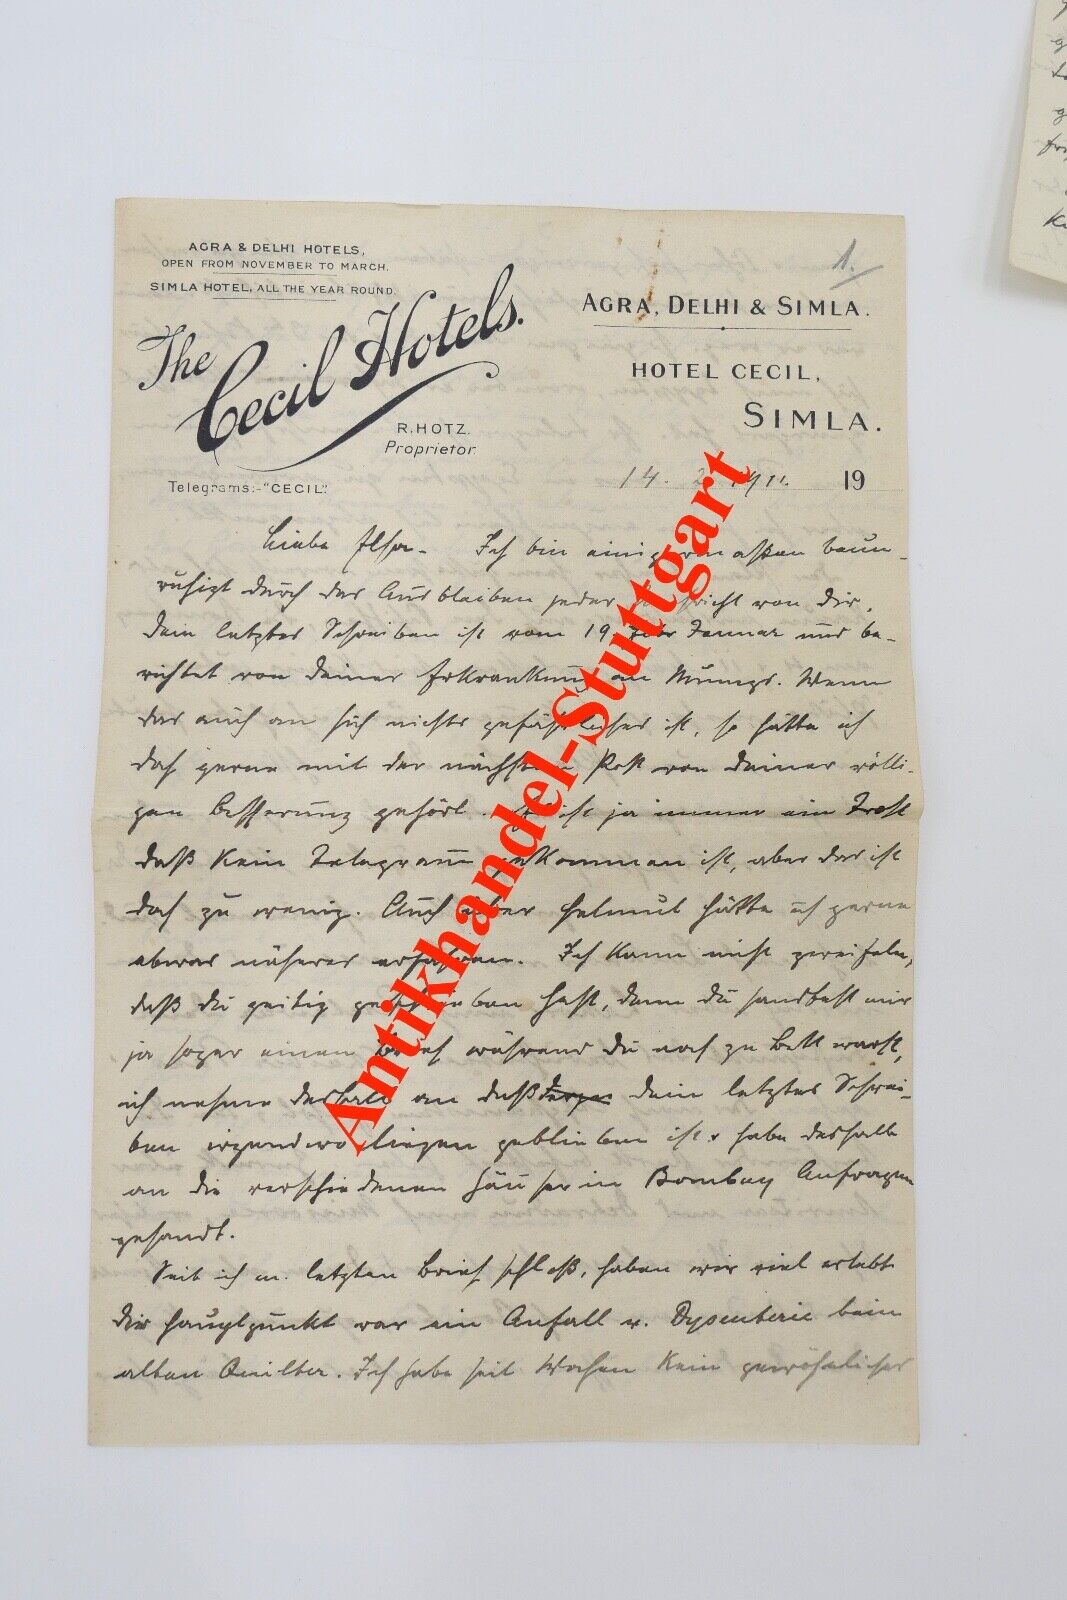 AGRA & DELHI HOTELS,
OPEN FROM NOVEMBER TO MARCH.
SIMLA HOTEL, ALL THE YEAR ROUND.
The Cecil Hotels.
R. HOTZ.
Proprietor.
Telegrams:-"CECIL".
1.
AGRA, DELHI & SIMLA.
HOTEL CECIL,
SIMLA.
14. 2. 1911. 19
Liebe Ilse - Ich bin einigermaßen beun-
ruhigt durch das Ausbleiben jeder Nachricht von Dir.
Dein letztes Schreiben ist vom 19. Januar und be-
richtet von Deiner Erkrankung an Mumps. Wenn
das auch an sich nichts gefährliches ist, so hätte ich
doch gerne mit der nächsten Post von Deiner völli-
gen Besserung gehört. Es ist ja immer ein Trost
daß kein Telegramm gekommen ist, aber das ist
doch zu wenig. Auch über Helmut hätte ich gerne
etwas näheres erfahren. Ich kann nicht zweifeln,
daß Du zeitig geschrieben hast, denn Du sandtest mir
ja sogar einen Brief während Du noch zu Bett warst,
ich nehme deshalb an daß dein letztes Schrei-
ben irgendwo liegen geblieben ist & habe deshalb
an die verschiedenen Häuser in Bombay Anfragen
gesandt.
Seit ich m. letzten Brief schloß, haben wir viel erlebt
Der Hauptpunkt war ein Anfall v. Dysenterie beim
alten Quilter. Ich habe seit Wochen kein gewöhnliches
Antikhandel-Stuttgart